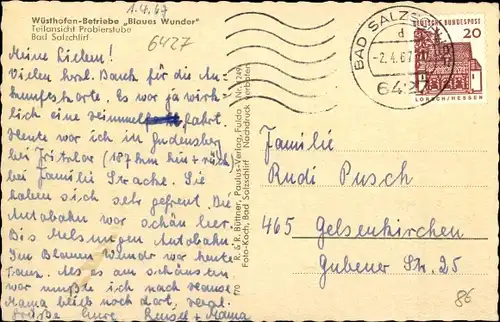 Wüsthofen-Betriebe „Blaues Wunder"
Teilansicht Probierstube
Bad Salzschlirf
1.4.67
6427
Meine Lieben!
Vielen herzl. Dank für die An-
kunftskarte. Es war ja wirk-
lich eine fahrt
Heute war ich in Gudensberg
bei Fritzlar (187 km hin + rück)
bei Familie Strache. Sie
haben sich sehr gefreut. Die
Autobahn war schön leer.
Bis Melsungen Autobahn
Im Blauen Wunder war heute
Tanz. Als es am schönsten
war mußte ich nach Hause
Mama blieb noch dort,
Grüße Eure + Mama
770
R. & R. Büttner, Paulus-Verlag, Fulda
Foto-Koch, Bad Salzschlirf Nachdruck verboten
BAD SALZSCHLIRF
d
-2.4.67
6427
DEUTSCHE BUNDESPOST
20
LORSCH/HESSEN
Familie
Rudi Pusch
465 Gelsenkirchen
Gubener Str. 25
8€